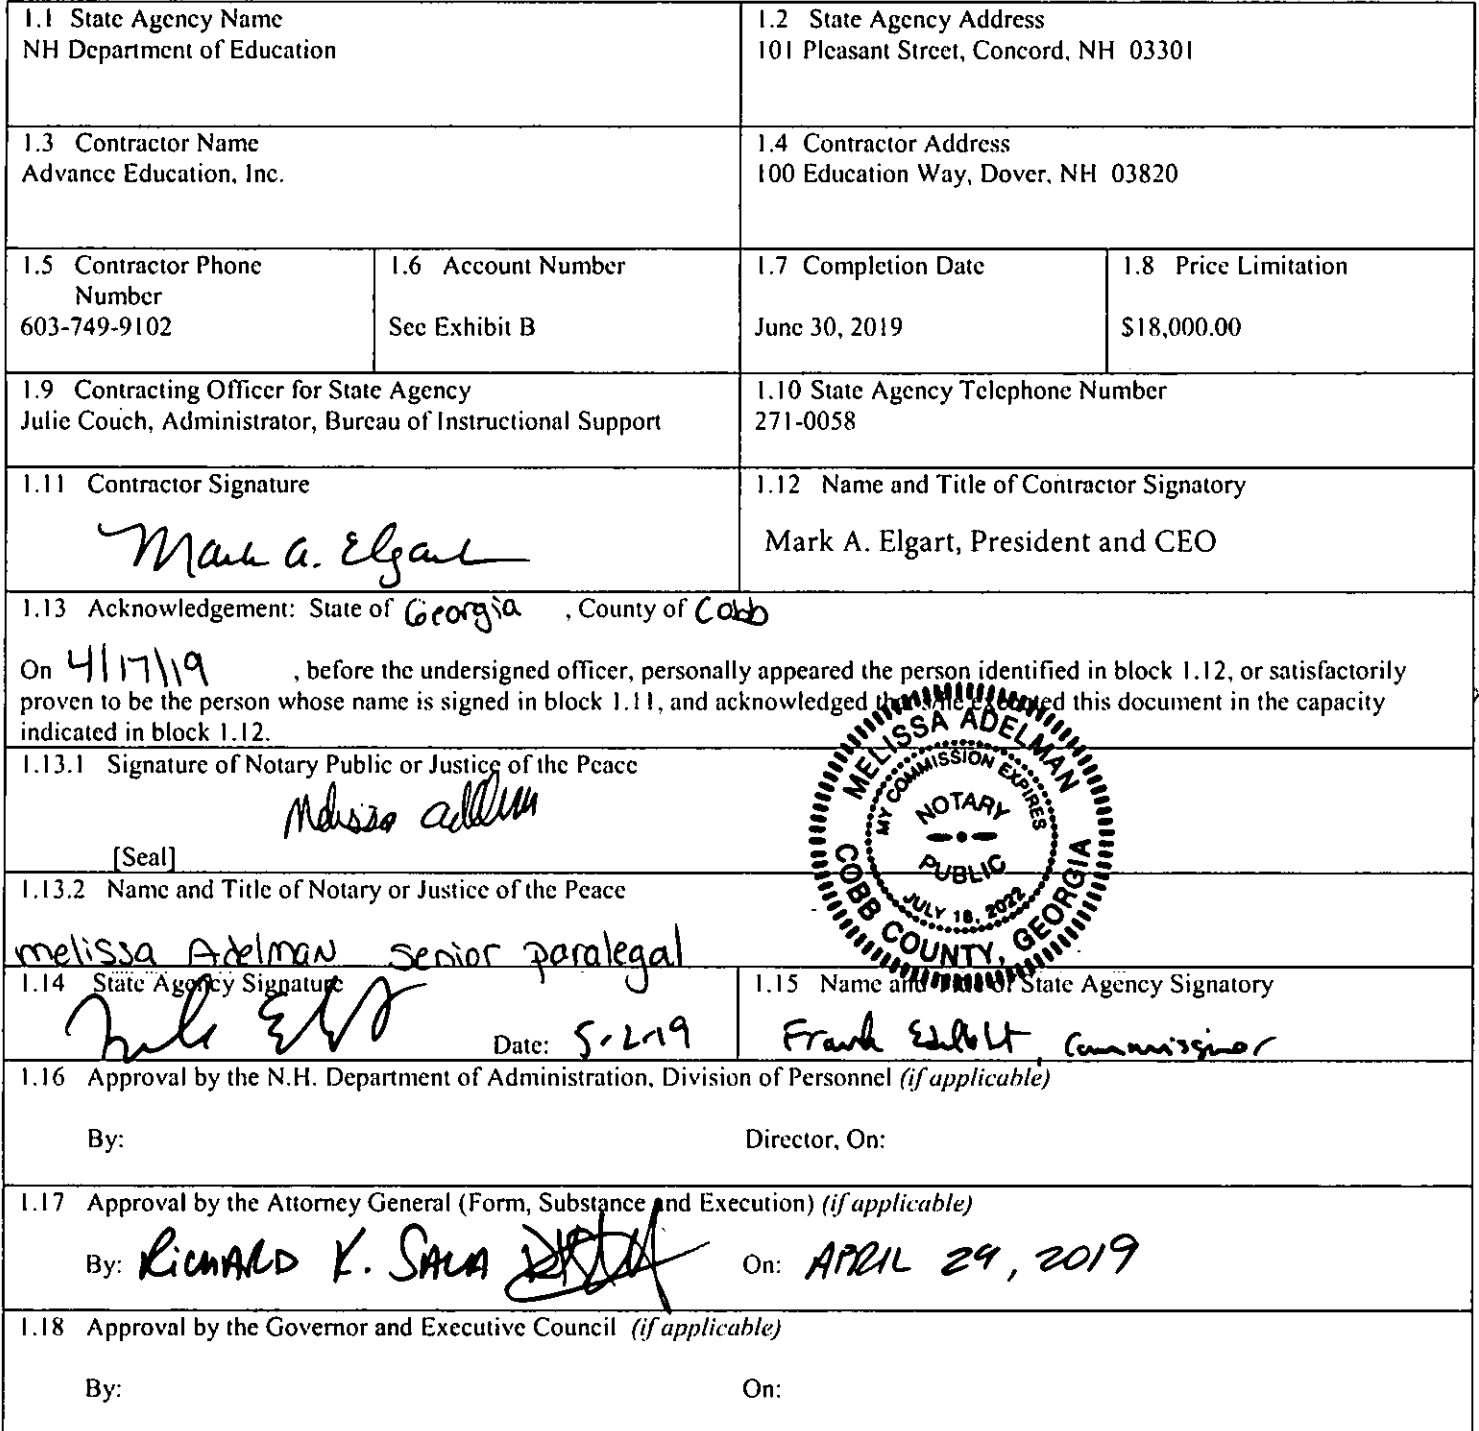 1.1 State Agency Name
NH Department of Education
1.2 State Agency Address
101 Pleasant Street, Concord, NH 03301
1.3 Contractor Name
Advance Education, Inc.
1.4 Contractor Address
100 Education Way, Dover, NH 03820
1.5 Contractor Phone
Number
603-749-9102
1.6 Account Number
See Exhibit B
1.7 Completion Date
June 30, 2019
1.8 Price Limitation
$18,000.00
1.9 Contracting Officer for State Agency
Julie Couch, Administrator, Bureau of Instructional Support
1.10 State Agency Telephone Number
271-0058
1.11 Contractor Signature
Mark A. Elgart
1.12 Name and Title of Contractor Signatory
Mark A. Elgart, President and CEO
1.13 Acknowledgement: State of Georgia , County of Cobb
On 4/17/19 , before the undersigned officer, personally appeared the person identified in block 1.12, or satisfactorily
proven to be the person whose name is signed in block 1.11, and acknowledged that s/he executed this document in the capacity
indicated in block 1.12.
1.13.1 Signature of Notary Public or Justice of the Peace
Melissa Adelman
[Seal]
MELISSA ADELMAN
MY COMMISSION EXPIRES
NOTARY
PUBLIC
JULY 18, 2022
COBB COUNTY, GEORGIA
1.13.2 Name and Title of Notary or Justice of the Peace
melissa Adelman senior paralegal
1.14 State Agency Signature
Date: 5-2-19
1.15 Name and Title of State Agency Signatory
Frank Edelblut, Commissioner
1.16 Approval by the N.H. Department of Administration, Division of Personnel (if applicable)
By:
Director, On:
1.17 Approval by the Attorney General (Form, Substance and Execution) (if applicable)
By: RICHARD K. SALA
On: APRIL 29, 2019
1.18 Approval by the Governor and Executive Council (if applicable)
By:
On: